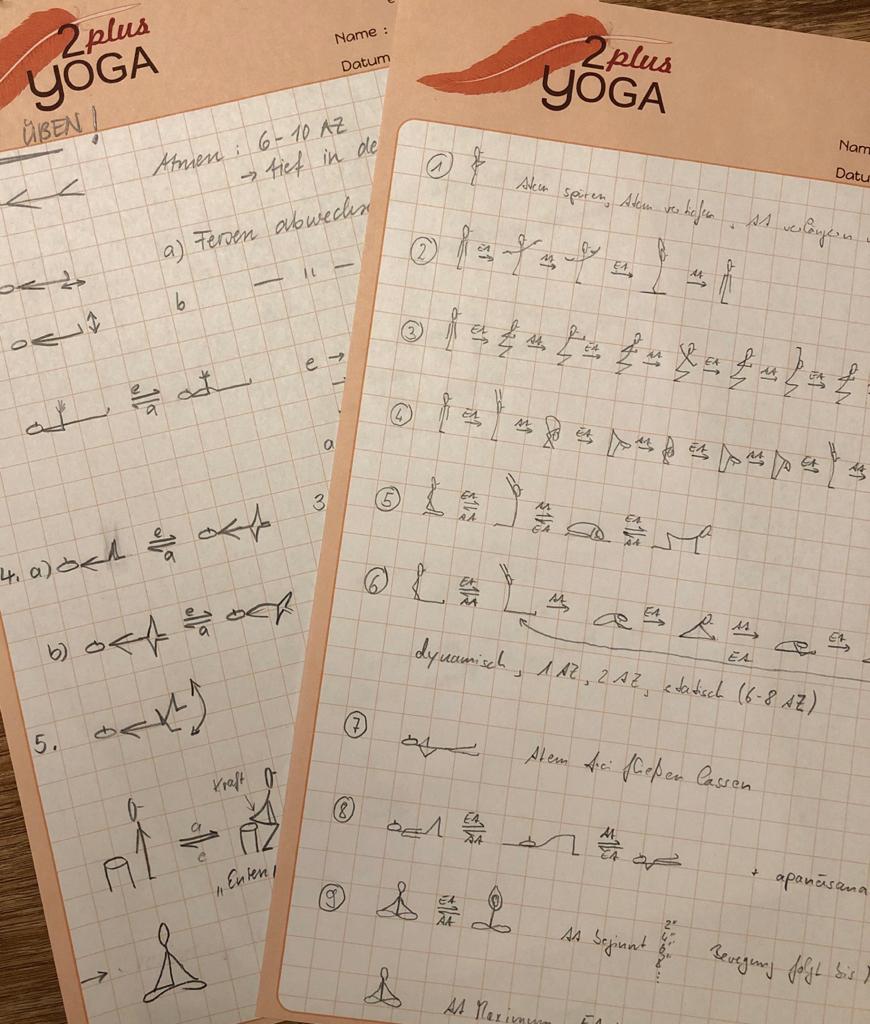 2plus
YOGA
Name :
Datum
ÜBEN !
Atmen : 6-10 AZ
→ tief in de
a) Fersen abwechs
b — " —
e →
e
a
a
3
4. a) e
a
b) e
a
5.
Kraft
a
e
"Enten
→
2plus
YOGA
Nam
Datu
① Atem spüren, Atem vertiefen, AA verlängern
② EA → AA → EA → AA →
③ EA → AA → EA → AA → EA → AA → EA →
④ EA → AA → EA → AA → EA → AA → EA → AA →
⑤ EA AA EA
AA EA AA
⑥ EA AA → EA → AA → EA →
AA
EA
dynamisch, 1 AZ, 2 AZ, statisch (6-8 AZ)
⑦ Atem frei fließen lassen
⑧ EA AA
AA EA
+ apanāsana
⑨ EA
AA
AA beginnt 2" 4" 6" 8" Bewegung folgt bis
AA Maximum EA